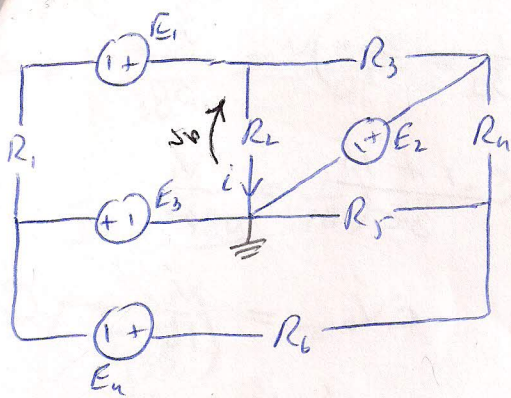 E₁
R₃
R₁
R₂
E₂
R₄
i
E₃
R₅
R₆
E₄